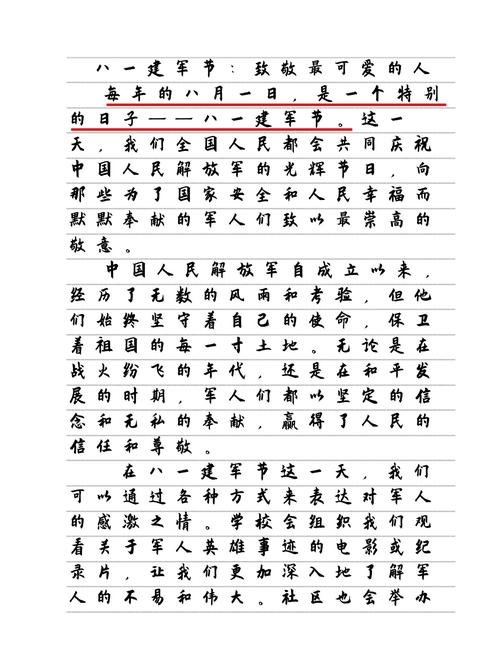 八一建军节：致敬最可爱的人
每年的八月一日，是一个特别
的日子——八一建军节。这一
天，我们全国人民都会共同庆祝
中国人民解放军的光辉节日，向
那些为了国家安全和人民幸福而
默默奉献的军人们致以最崇高的
敬意。
中国人民解放军自成立以来，
经历了无数的风雨和考验，但他
们始终坚守着自己的使命，保卫
着祖国的每一寸土地。无论是在
战火纷飞的年代，还是在和平发
展的时期，军人们都以坚定的信
念和无私的奉献，赢得了人民的
信任和尊敬。
在八一建军节这一天，我们
可以通过各种方式来表达对军人
的感激之情。学校会组织我们观
看关于军人英雄事迹的电影或纪
录片，让我们更加深入地了解军
人的不易和伟大。社区也会举办